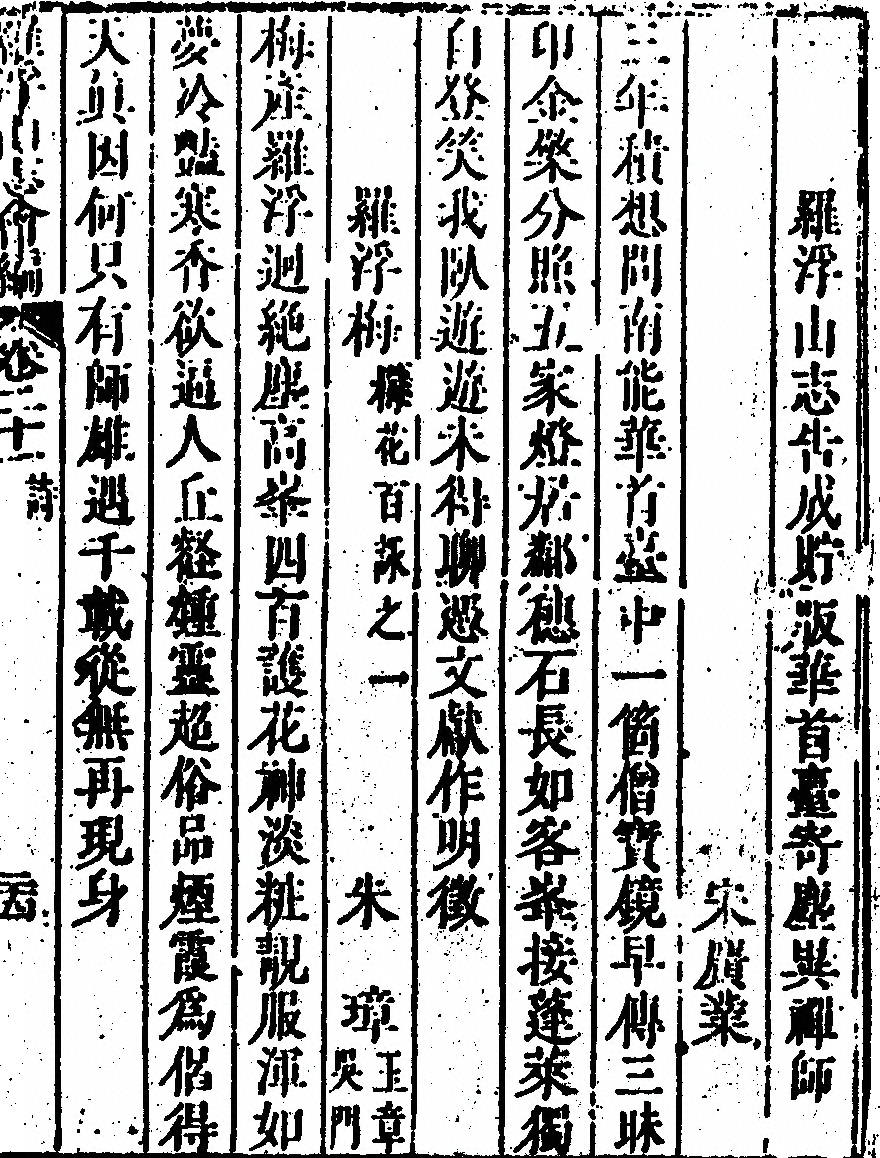 羅浮山志告成貯版華首臺寄塵異禪師
宋廣業
三年積想問南能華首臺中一箇僧寶鏡早傳三昧
印金檠分照五家燈居鄰穗石長如客峯接蓬萊獨
自登笑我臥遊遊未得聊文獻作明徵
羅浮梅 梅花百詠之一 朱璋 玉章 吳門
梅産羅浮迥絶塵高峯四百護花神淡粧靚服渾如
夢冷豔寒香欲逼人丘壑鍾靈超俗品煙霞爲侶得
天眞因何只有師雄遇千載從無再現身
羅浮山志會編 卷二十一 詩